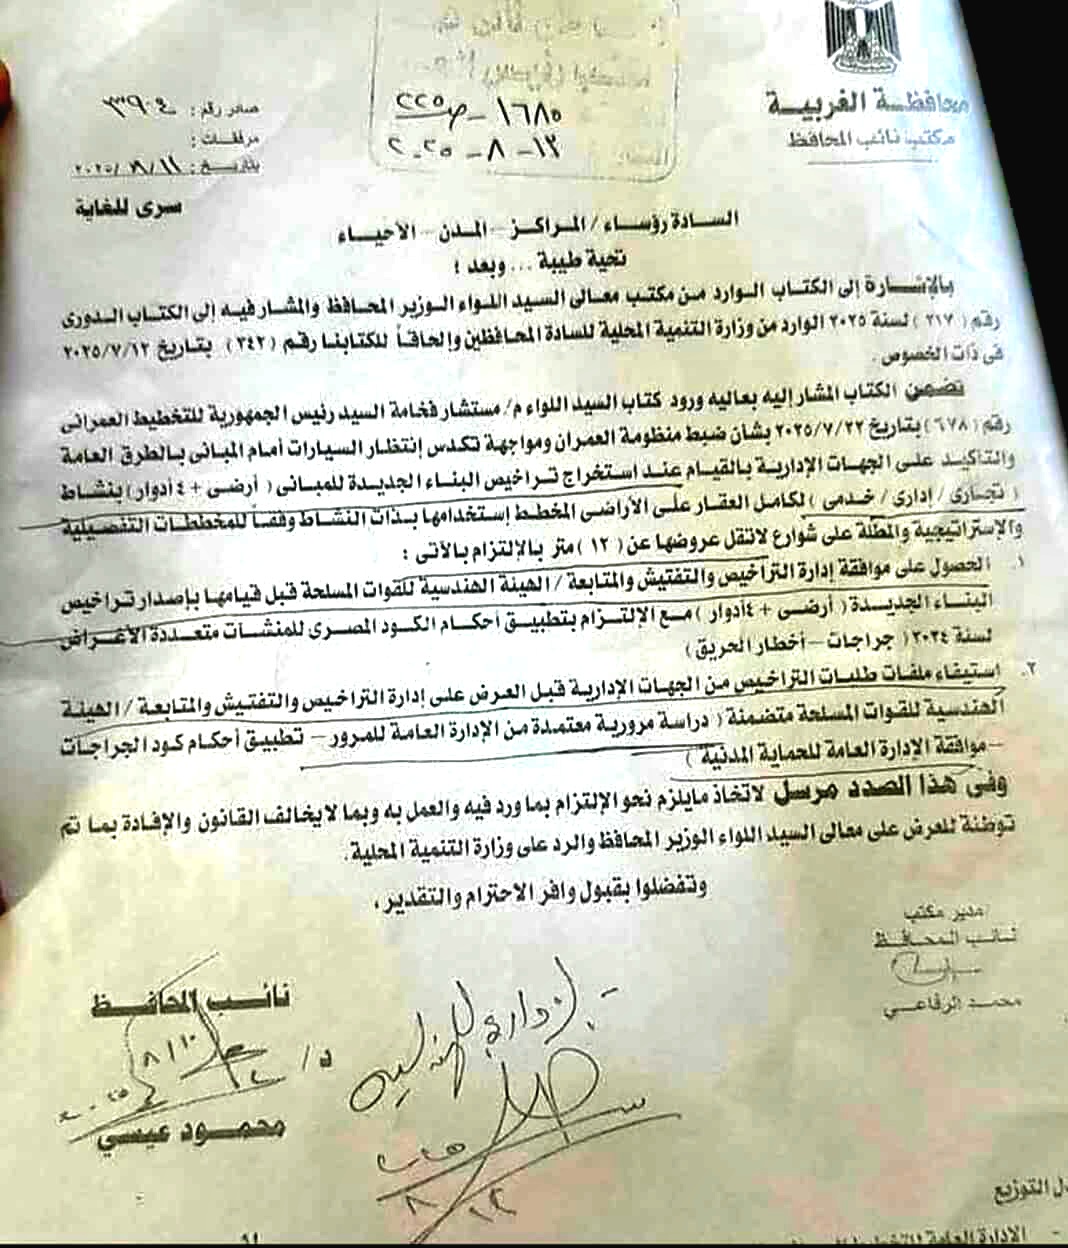 محافظة الغربية
مكتب نائب المحافظ
صادر رقم : ٣٩٠٤
مرفقات :
بتاريخ : ٢٠٢٥/٨/١١
سرى للغاية
١٦٨٥ - ص ٢٢٥
١٣ - ٨ - ٢٠٢٥
السادة رؤساء / المراكز - المدن - الأحياء
تحية طيبة ... وبعد ؛
بالإشارة إلى الكتاب الوارد من مكتب معالى السيد اللواء الوزير المحافظ والمشار فيه إلى الكتاب الدورى
رقم ( ٢١٧ ) لسنة ٢٠٢٥ الوارد من وزارة التنمية المحلية للسادة المحافظين وإلحاقاً لكتابنا رقم ( ٢٤٢ ) بتاريخ ٢٠٢٥/٧/١٢
فى ذات الخصوص .
تضمن الكتاب المشار إليه بعاليه ورود كتاب السيد اللواء م/ مستشار فخامة السيد رئيس الجمهورية للتخطيط العمرانى
رقم ( ٦٧٨ ) بتاريخ ٢٠٢٥/٧/٢٢ بشأن ضبط منظومة العمران ومواجهة تكدس إنتظار السيارات أمام المبانى بالطرق العامة
والتأكيد على الجهات الإدارية بالقيام عند استخراج تراخيص البناء الجديدة للمبانى ( أرضى + ٤ أدوار ) بنشاط
( تجارى / إدارى / خدمى ) لكامل العقار على الأراضى المخطط إستخدامها بذات النشاط وفقاً للمخططات التفصيلية
والإستراتيجية والمطلة على شوارع لاتقل عروضها عن ( ١٢ ) متر بالإلتزام بالآتى :
١. الحصول على موافقة إدارة التراخيص والتفتيش والمتابعة / الهيئة الهندسية للقوات المسلحة قبل قيامها بإصدار تراخيص
البناء الجديدة ( أرضى + ٤ أدوار ) مع الإلتزام بتطبيق أحكام الكود المصرى للمنشآت متعددة الأغراض
لسنة ٢٠٢٤ ( جراجات - أخطار الحريق )
٢. إستيفاء ملفات طلبات التراخيص من الجهات الإدارية قبل العرض على إدارة التراخيص والتفتيش والمتابعة / الهيئة
الهندسية للقوات المسلحة متضمنة ( دراسة مرورية معتمدة من الإدارة العامة للمرور - تطبيق أحكام كود الجراجات
- موافقة الإدارة العامة للحماية المدنية )
وفى هذا الصدد مرسل لاتخاذ مايلزم نحو الإلتزام بما ورد فيه والعمل به وبما لايخالف القانون والإفادة بما تم
توطئة للعرض على معالى السيد اللواء الوزير المحافظ والرد على وزارة التنمية المحلية .
وتفضلوا بقبول وافر الاحترام والتقدير ،
مدير مكتب
نائب المحافظ
محمد الرفاعي
نائب المحافظ
د /
٨/١٠
٢٠٢٥
محمود عيسي
- الإدارة الهندسية
٨/١٣
التوزيع
- الإدارة العامة للتخطيط